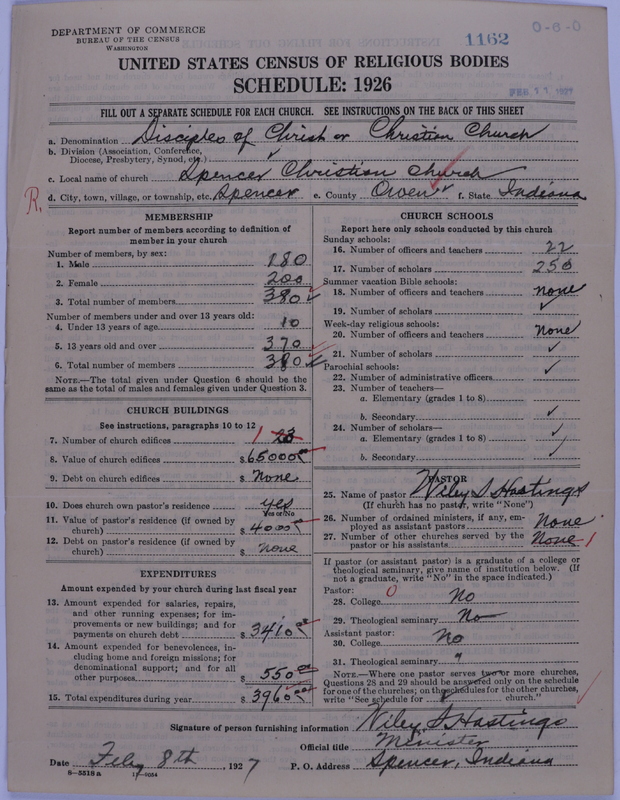 DEPARTMENT OF COMMERCE
BUREAU OF THE CENSUS
WASHINGTON
1162
0-6-0
UNITED STATES CENSUS OF RELIGIOUS BODIES
SCHEDULE: 1926
FEB 11 1927
FILL OUT A SEPARATE SCHEDULE FOR EACH CHURCH. SEE INSTRUCTIONS ON THE BACK OF THIS SHEET
a. Denomination Disciples of Christ or Christian Church
b. Division (Association, Conference, Diocese, Presbytery, Synod, etc.) ✓
c. Local name of church Spencer Christian Church
R.
d. City, town, village, or township, etc. Spencer e. County Owen f. State Indiana
MEMBERSHIP
Report number of members according to definition of member in your church
Number of members, by sex:
1. Male 180
2. Female 200
3. Total number of members 380
Number of members under and over 13 years old:
4. Under 13 years of age 10
5. 13 years old and over 370
6. Total number of members 380
NOTE.—The total given under Question 6 should be the same as the total of males and females given under Question 3.
CHURCH BUILDINGS
See instructions, paragraphs 10 to 12
7. Number of church edifices 1
8. Value of church edifices $65000 00
9. Debt on church edifices $None
10. Does church own pastor's residence? yes
Yes or No
11. Value of pastor's residence (if owned by church) $4000 00
12. Debt on pastor's residence (if owned by church) $none
EXPENDITURES
Amount expended by your church during last fiscal year
13. Amount expended for salaries, repairs, and other running expenses; for improvements or new buildings; and for payments on church debt $3410 00
14. Amount expended for benevolences, including home and foreign missions; for denominational support; and for all other purposes $550 00
15. Total expenditures during year $3960 00
CHURCH SCHOOLS
Report here only schools conducted by this church
Sunday schools:
16. Number of officers and teachers 22
17. Number of scholars 250
Summer vacation Bible schools:
18. Number of officers and teachers none
19. Number of scholars ✓
Week-day religious schools:
20. Number of officers and teachers None
21. Number of scholars ✓
Parochial schools:
22. Number of administrative officers ✓
23. Number of teachers—
a. Elementary (grades 1 to 8)
b. Secondary ✓
24. Number of scholars—
a. Elementary (grades 1 to 8) ✓
b. Secondary ✓
PASTOR
25. Name of pastor Wiley S Hastings
(If church has no pastor, write "None")
26. Number of ordained ministers, if any, employed as assistant pastors None
27. Number of other churches served by the pastor or his assistants None 1
If pastor (or assistant pastor) is a graduate of a college or theological seminary, give name of institution below. (If not a graduate, write "No" in the space indicated.)
Pastor: 0
28. College No
29. Theological seminary No
Assistant pastor:
30. College No
31. Theological seminary "
NOTE.—Where one pastor serves two or more churches, Questions 28 and 29 should be answered only on the schedule for one of the churches; on the schedules for the other churches, write "See schedule for church."
Signature of person furnishing information Wiley S Hastings
Official title Minister
Date Feby 8th, 1927 P. O. Address Spencer, Indiana
8—5518 a